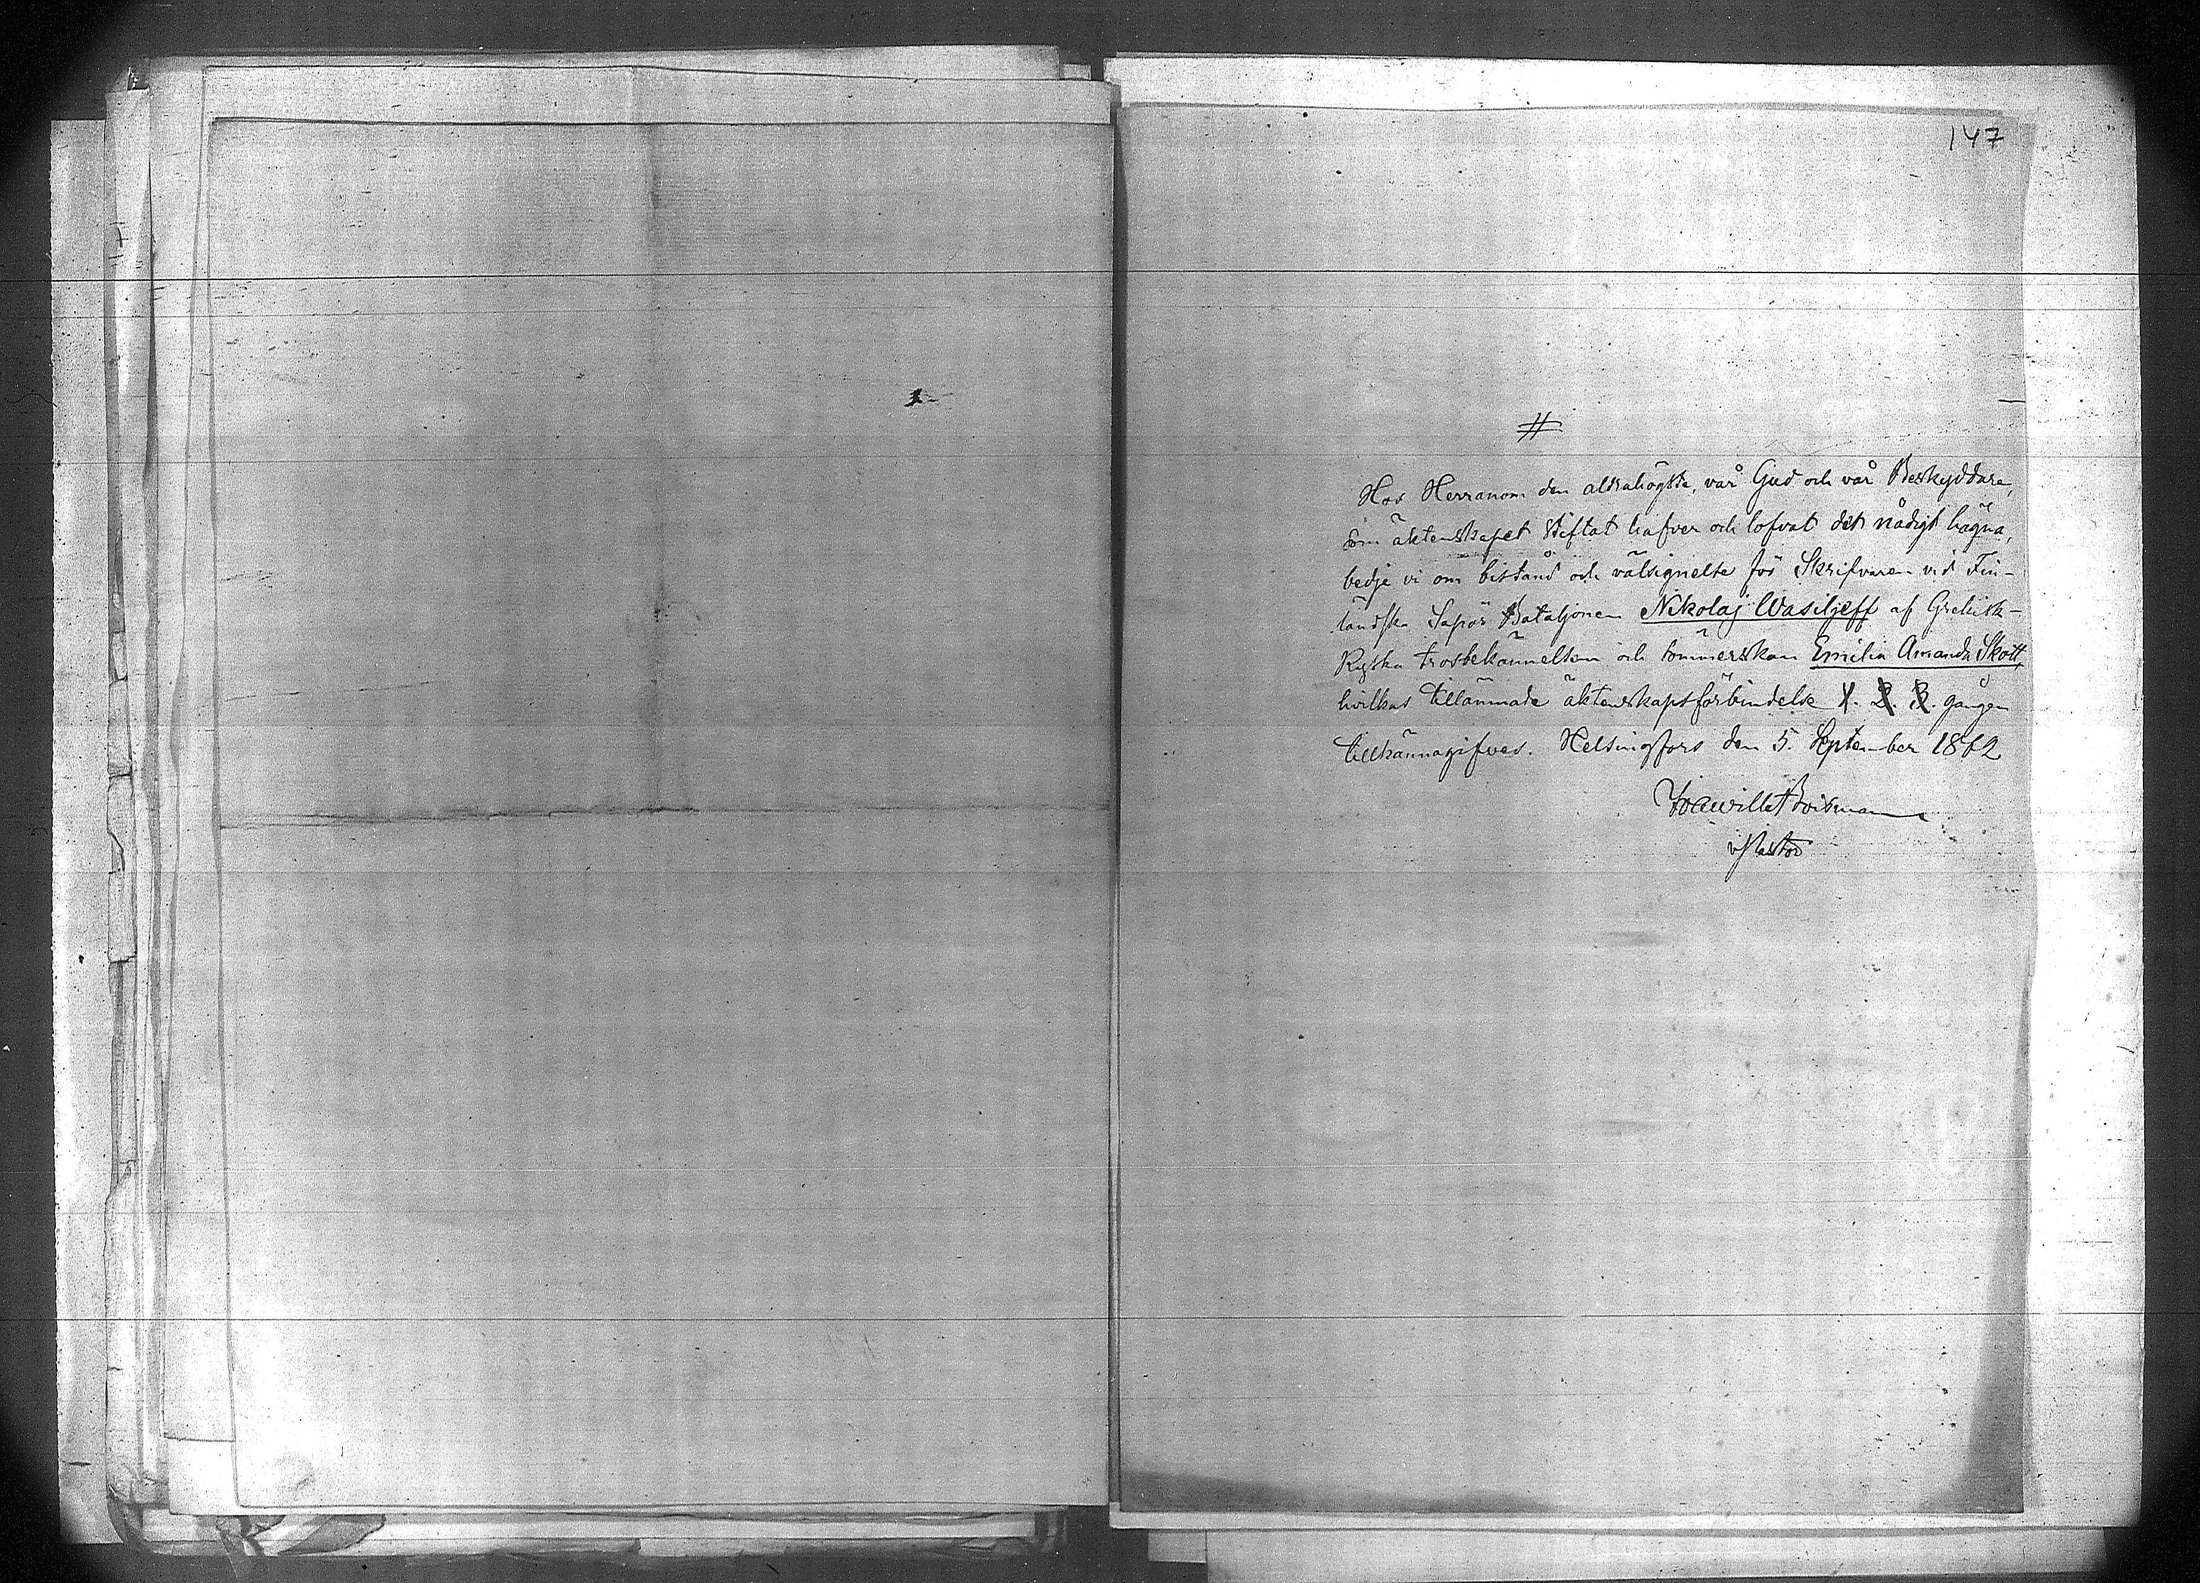 147
#
Hos Herranom den aldrahögste, vår Gud och vår Beskyddare,
som äktenskapet stiftat hafver och lofvat det nådigt hägna,
bedje vi om bistånd och välsignelse för Skrifvaren vid Fin-
ländska Sapör Bataljonen Nikolaj Wasiljeff af Grekisk-
Ryska trosbekännelsen och sömmerskan Emilia Amanda Skott,
hvilkas tillämnade äktenskapsförbindelse 1. 2. 3. gången
tillkännagifves. Helsingfors den 5. September 1862
v Pastor